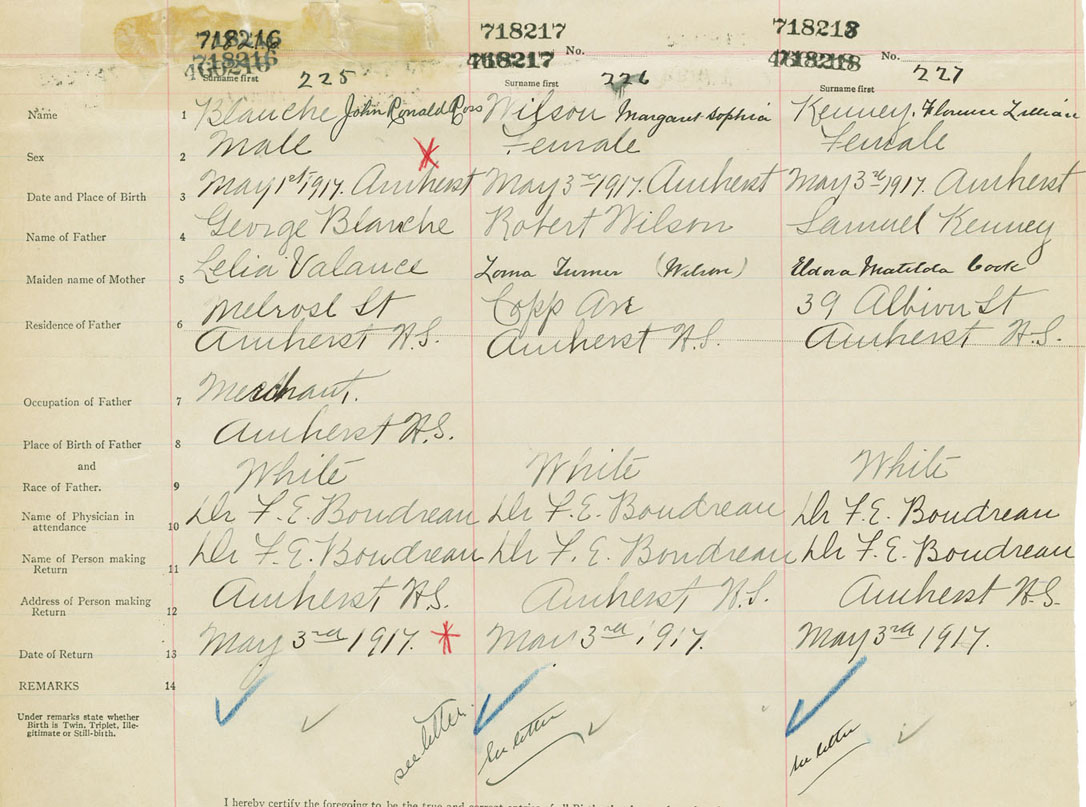 718216 718217 718218
718216 468217 No. 468218 No.
468216
Surname first 225 Surname first 226 Surname first 227
Name 1 Blanche John Ronald Ross Wilson Margaret Sophia Kenney, Florence Lillian
Sex 2 Male Female Female
Date and Place of Birth 3 May 1st, 1917. Amherst May 3rd, 1917. Amherst May 3rd, 1917. Amherst
Name of Father 4 George Blanche Robert Wilson Samuel Kenney
Maiden name of Mother 5 Lelia Valance Lorna Turner (Wilson) Eldora Matilda Cook
Residence of Father 6 Melrose St Copp Ave 39 Albion St
Amherst N.S. Amherst N.S. Amherst N.S.
Occupation of Father 7 Merchant.
Place of Birth of Father 8 Amherst N.S.
and
Race of Father. 9 White White White
Name of Physician in attendance 10 Dr F. E. Boudreau Dr F. E. Boudreau Dr F. E. Boudreau
Name of Person making Return 11 Dr F. E. Boudreau Dr F. E. Boudreau Dr F. E. Boudreau
Address of Person making Return 12 Amherst N.S. Amherst N.S. Amherst N.S.
Date of Return 13 May 3rd 1917. May 3rd 1917. May 3rd 1917.
REMARKS 14
Under remarks state whether
Birth is Twin, Triplet, Ille-
gitimate or Still-birth.
see letter. see letter see letter
I hereby certify the foregoing to be the true and correct entries of all Births